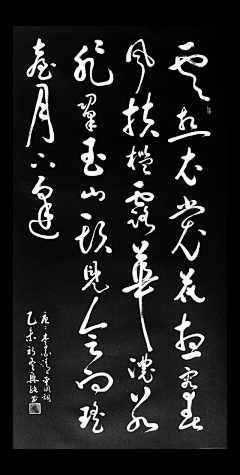 雲想衣裳花想容春
風拂檻露華濃若
非群玉山頭見會向瑤
臺月下逢
唐李白清平調詞
乙未初